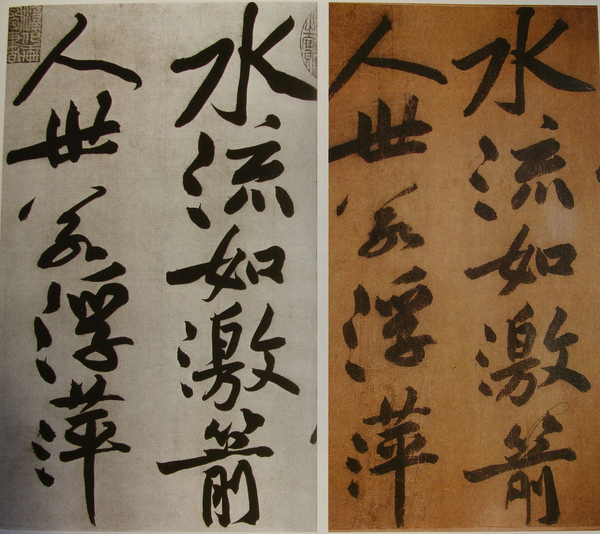 水流如激箭
人世若浮萍
水流如激箭
人世若浮萍